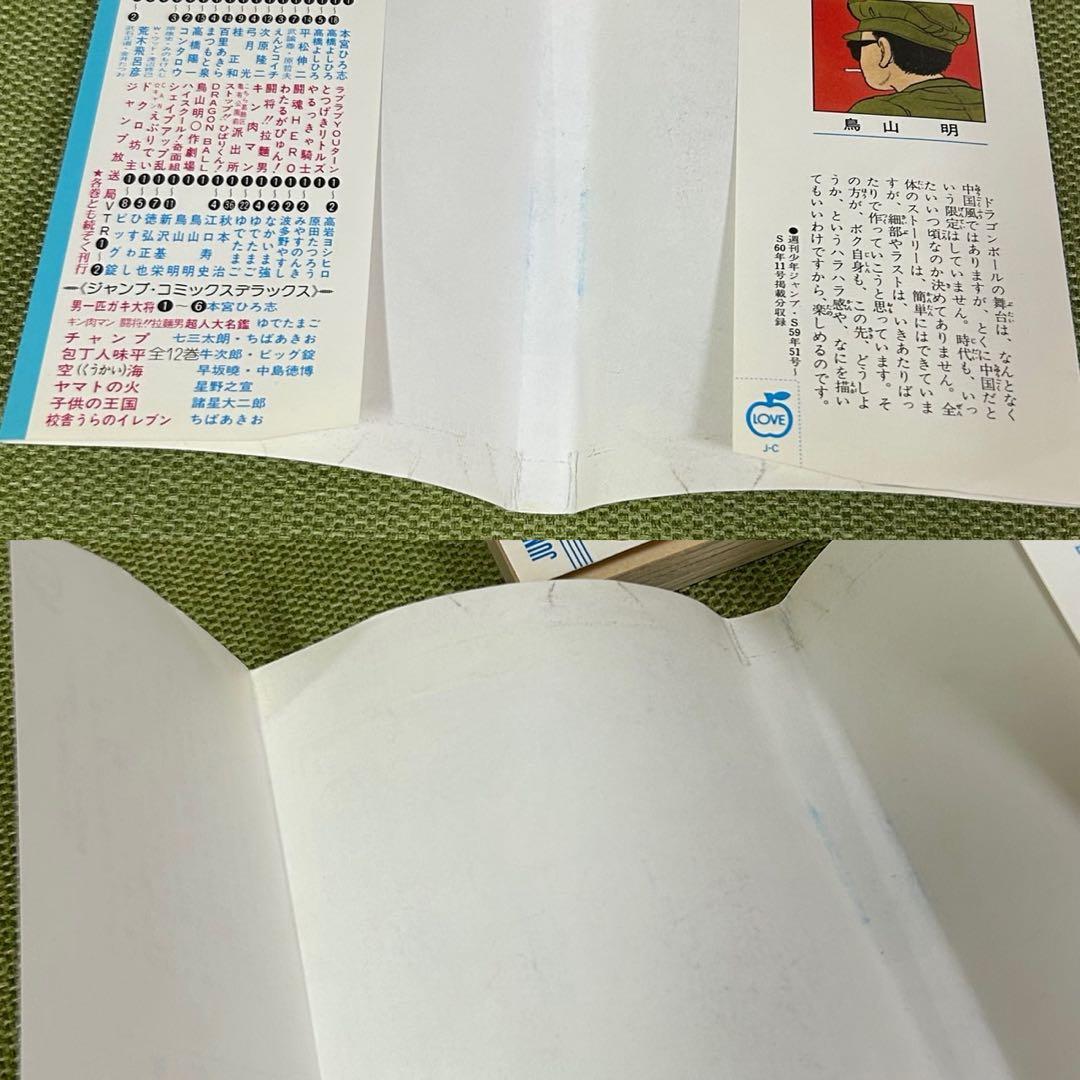 鳥山 明
ドラゴンボールの舞台は、なんとなく
中国風ではありますが、とくに中国だと
いう限定はしていません。時代も、いっ
たいいつ頃なのか決めてありません。全
体のストーリーは、簡単にはできていま
すが、細部やラストは、いきあたりばっ
たりで作っていこうと思っています。そ
の方が、ボク自身も、この先、どうしよ
うか、というハラハラ感や、なにを描い
てもいいわけですから、楽しめるのです。
●週刊少年ジャンプ・S59年51号〜
S60年11号掲載分収録
LOVE
J-C
ラブラブYOUターン 高岩ヨシヒロ
本宮ひろ志
とつげきリトルズ 原田たつろう
高橋よしひろ
やるっきゃ騎士 みやすのんき
高橋よしひろ
闘魂HERO 波多野やすし
平松伸二
わたるがぴゅん! なかいま強
武論尊・原哲夫
闘将!!拉麵男 ゆでたまご
えんどコイチ
キン肉マン ゆでたまご
次原隆二
こちら葛飾区亀有公園前派出所 秋本治
弓月光
ストップ!!ひばりくん! 江口寿史
桂正和
DRAGON BALL 鳥山明
百里あきら
鳥山明○作劇場 鳥山明
まつもと泉
ハイスクール!奇面組 新沢基栄
高橋陽一
シェイプアップ乱 徳弘正也
コンタロウ
えぶりでい ひすわし
ドクロ坊主 ビッグ錠
荒木飛呂彦
ジャンプ放送局VTR❶〜❷
★各巻とも続ぞく刊行
《ジャンプ・コミックスデラックス》
男一匹ガキ大将❶〜❻本宮ひろ志
キン肉マン 闘将!!拉麵男超人大名鑑 ゆでたまご
チャンプ 七三太朗・ちばあきお
包丁人味平全12巻牛次郎・ビッグ錠
空(くうかい)海 早坂暁・中島徳博
ヤマトの火 星野之宣
子供の王国 諸星大二郎
校舎うらのイレブン ちばあきお
JUM